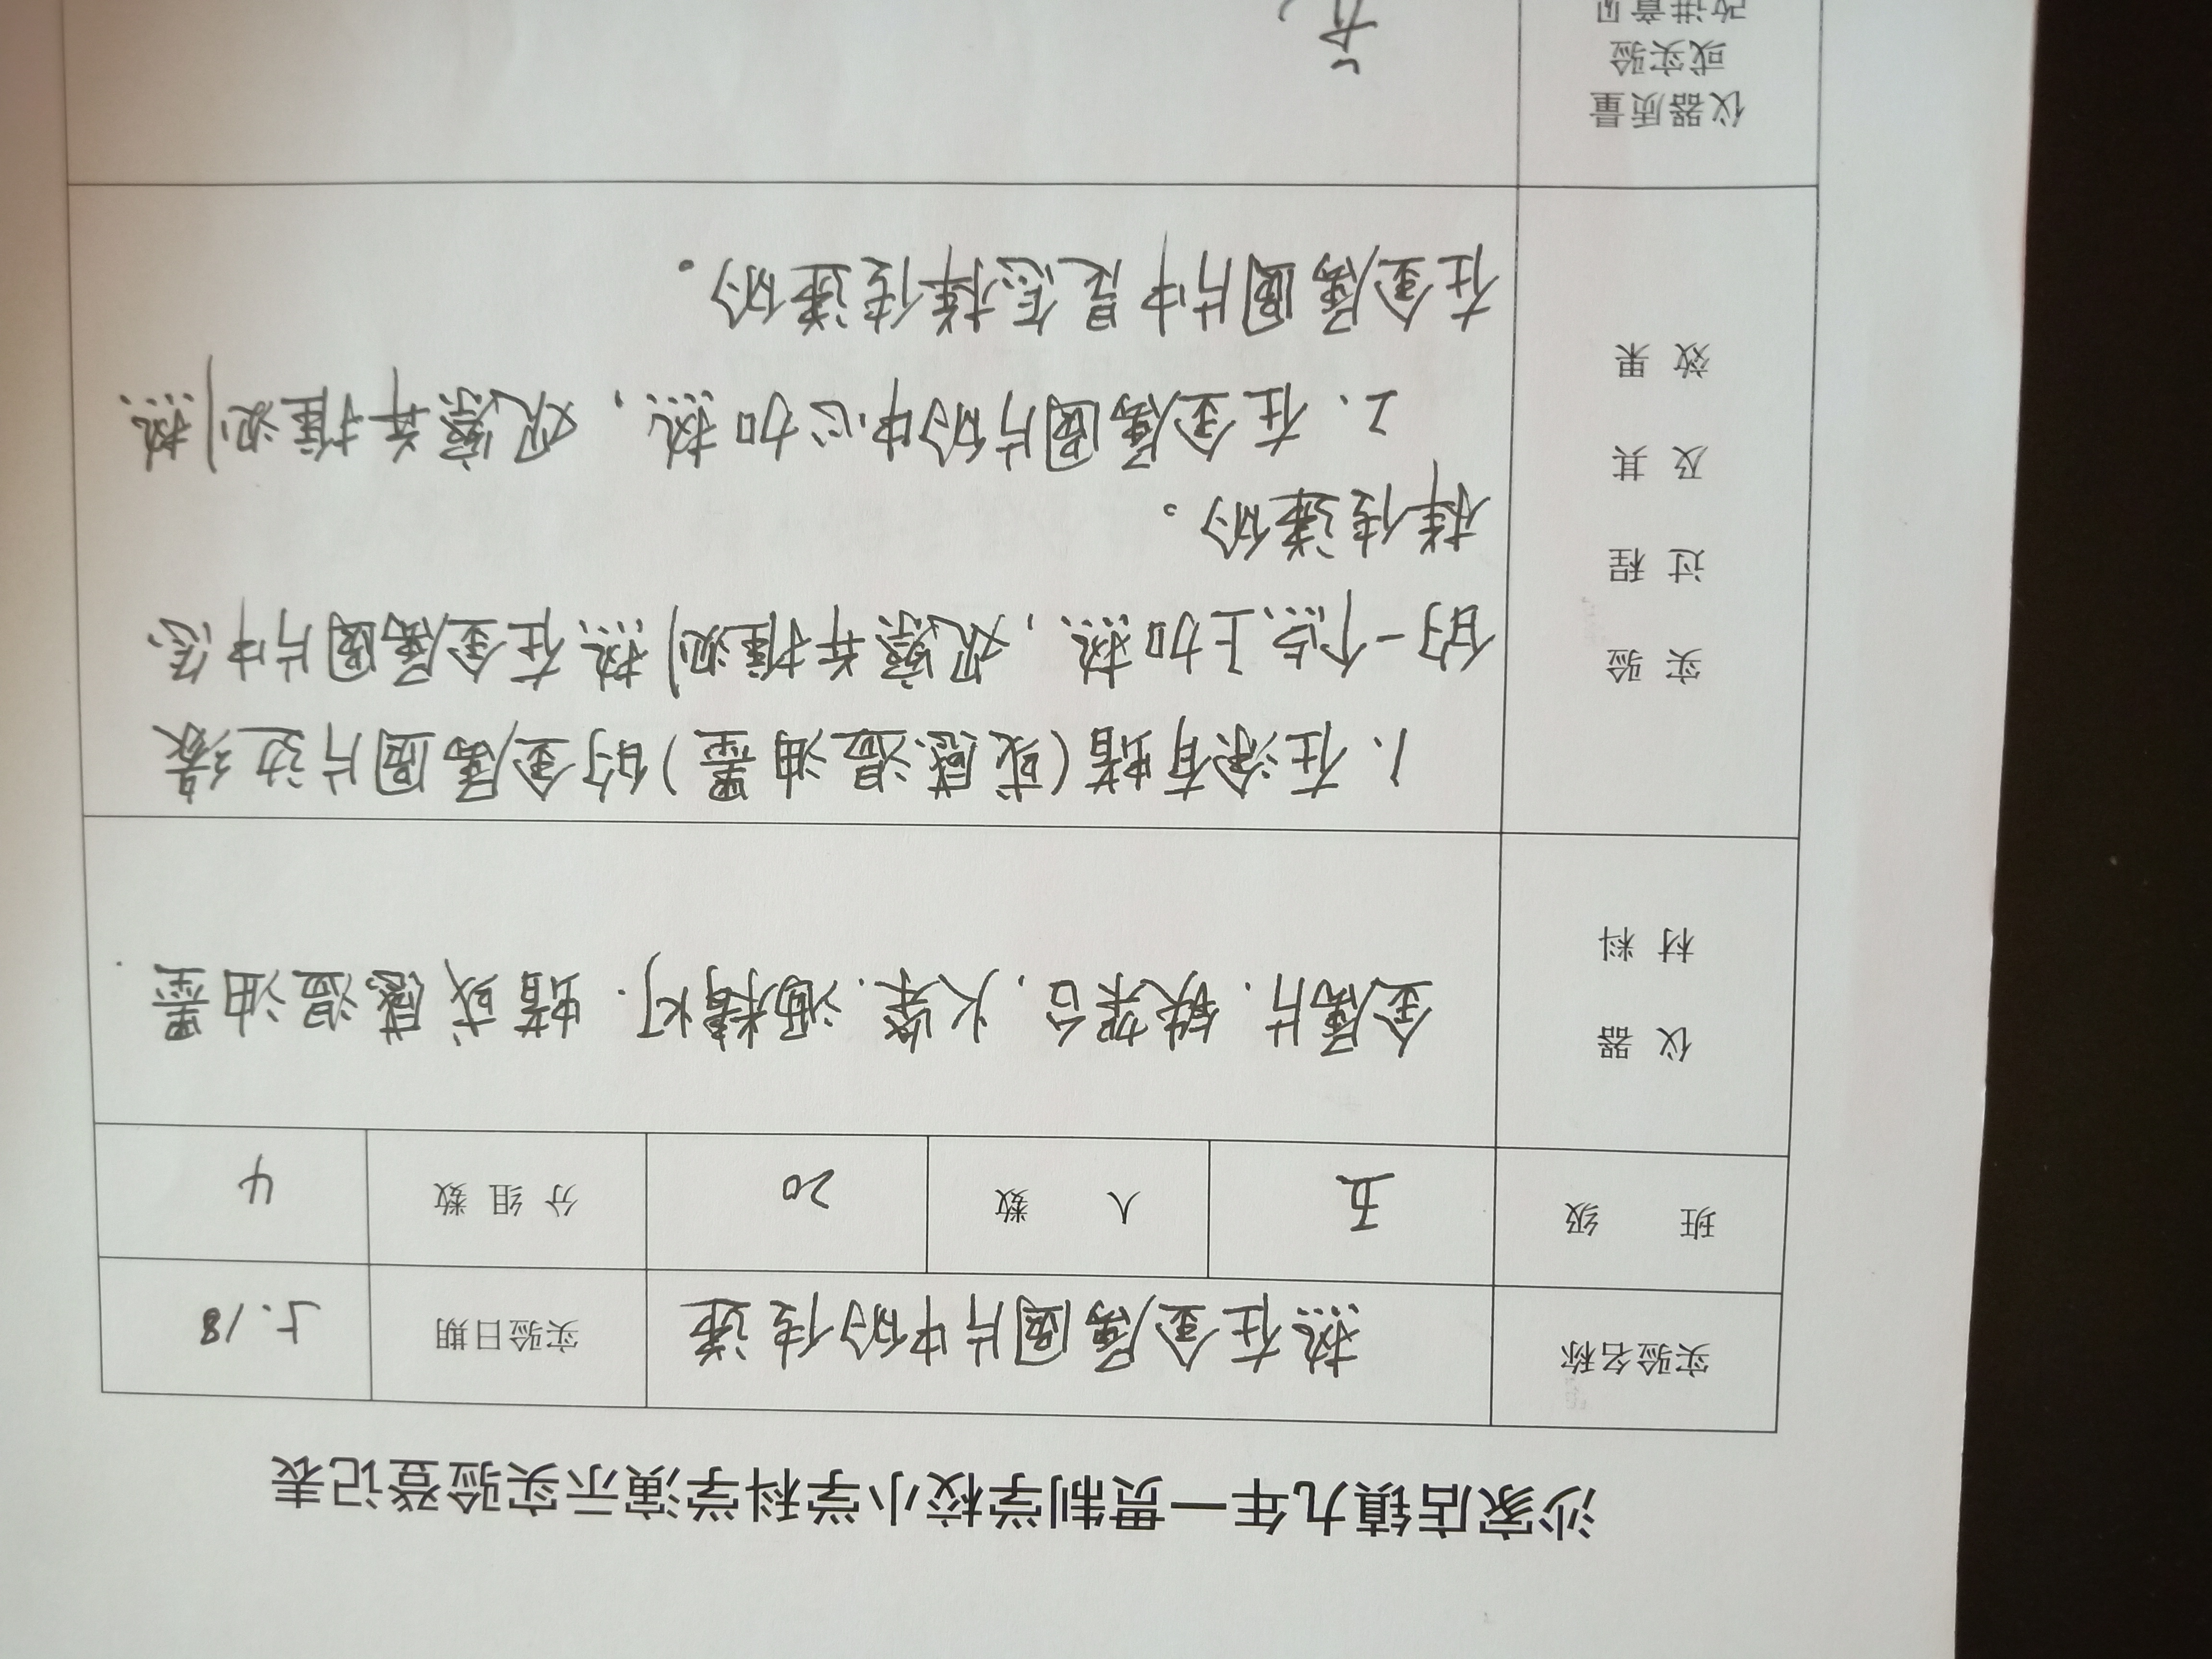 沙家店镇九年一贯制学校小学科学演示实验登记表
实验名称 热在金属圆片中的传递 实验日期 5.18
班级 五 人数 20 分组数 4
仪器材料 金属片.铁架台,火柴.酒精灯.蜡或感温油墨.
实验过程及其效果
1、在涂有蜡(或感温油墨)的金属圆片边缘
的一个点上加热,观察并推测热在金属圆片中怎
样传递的。
2、在金属圆片的中心加热,观察并推测热
在金属圆片中是怎样传递的。
仪器质量
或实验
改进意见